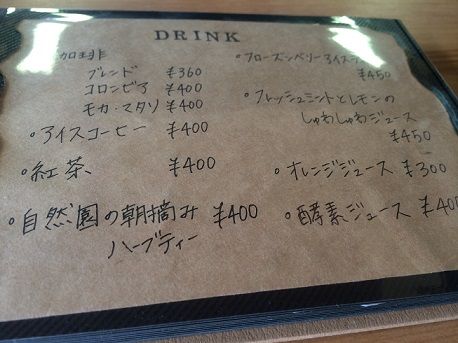 DRINK
珈琲
ブレンド ¥360
コロンビア ¥400
モカ・マタリ ¥400
・アイスコーヒー ¥400
・紅茶 ¥400
・自然園の朝摘み ¥400
ハーブティー
・フローズンベリーアイスティ
¥450
・フレッシュミントとレモンの
しゅわしゅわジュース
¥450
・オレンジジュース ¥300
・酵素ジュース ¥400